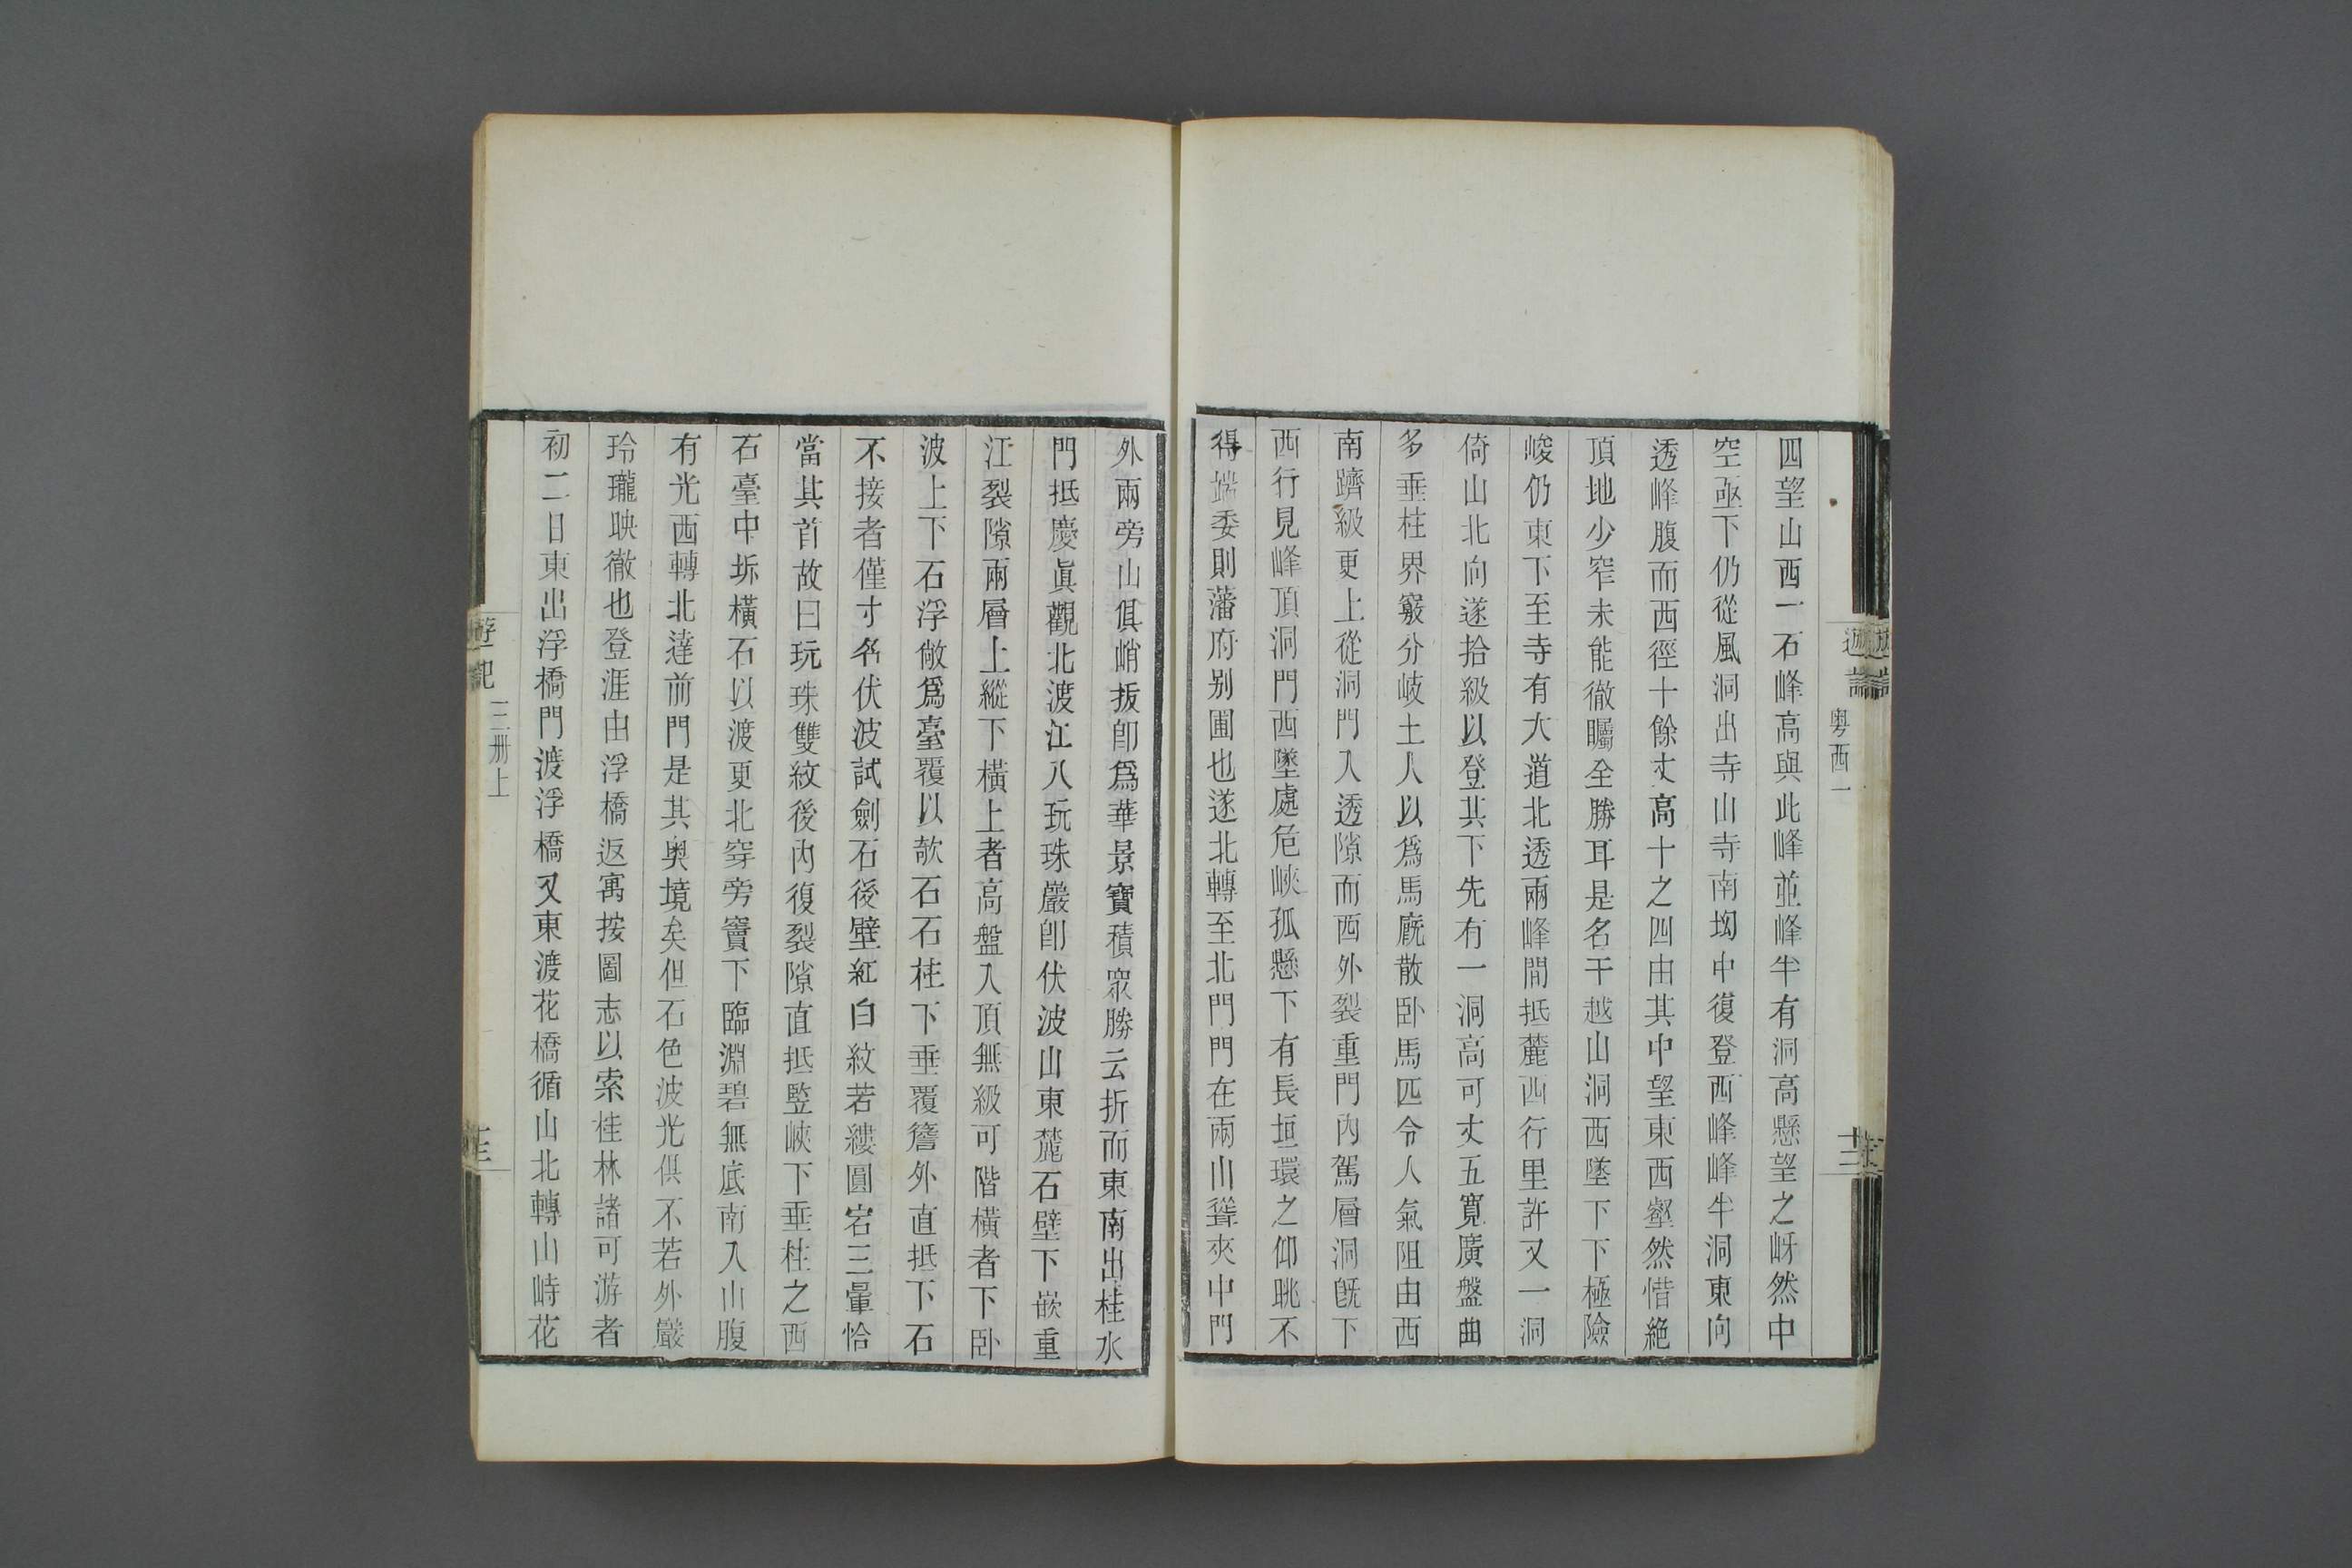 粤西一
四望山西一石峰高與此峰並峰半有洞高懸望之岈然中
空亟下仍從風洞出寺山寺南坳中復登西峰峰半洞東向
透峰腹而西徑十餘丈高十之四由其中望東西壑然惜絶
頂地少窄未能徹矚全勝耳是名干越山洞西墜下下極險
峻仍東下至寺有大道北透兩峰間抵麓西行里許又一洞
倚山北向遂拾級以登其下先有一洞高可丈五寬廣盤曲
多垂柱界竅分岐土人以爲馬廐散卧馬匹令人氣阻由西
南躋級更上從洞門入透隙而西外裂重門内駕層洞旣下
西行見峰頂洞門西墜處危峽孤懸下有長垣環之仰眺不
得端委則藩府别圃也遂北轉至北門門在兩山聳夾中門
外兩旁山俱峭拔卽爲華景寶積衆勝云折而東南出桂水
門抵慶眞觀北渡江入玩珠巖卽伏波山東麓石壁下嵌重
江裂隙兩層上縱下橫上者高盤入頂無級可階橫者下卧
波上下石浮敞爲臺覆以欹石石柱下垂覆簷外直抵下石
不接者僅寸名伏波試劍石後壁紅白紋若縷圓岩三暈恰
當其首故曰玩珠雙紋後内復裂隙直抵竪峽下垂柱之西
石臺中坼橫石以渡更北穿旁竇下臨淵碧無底南入山腹
有光西轉北達前門是其奥境矣但石色波光俱不若外巖
玲瓏映徹也登涯由浮橋返寓按圖志以索桂林諸可游者
初二日東出浮橋門渡浮橋又東渡花橋循山北轉山峙花
遊記
三册上